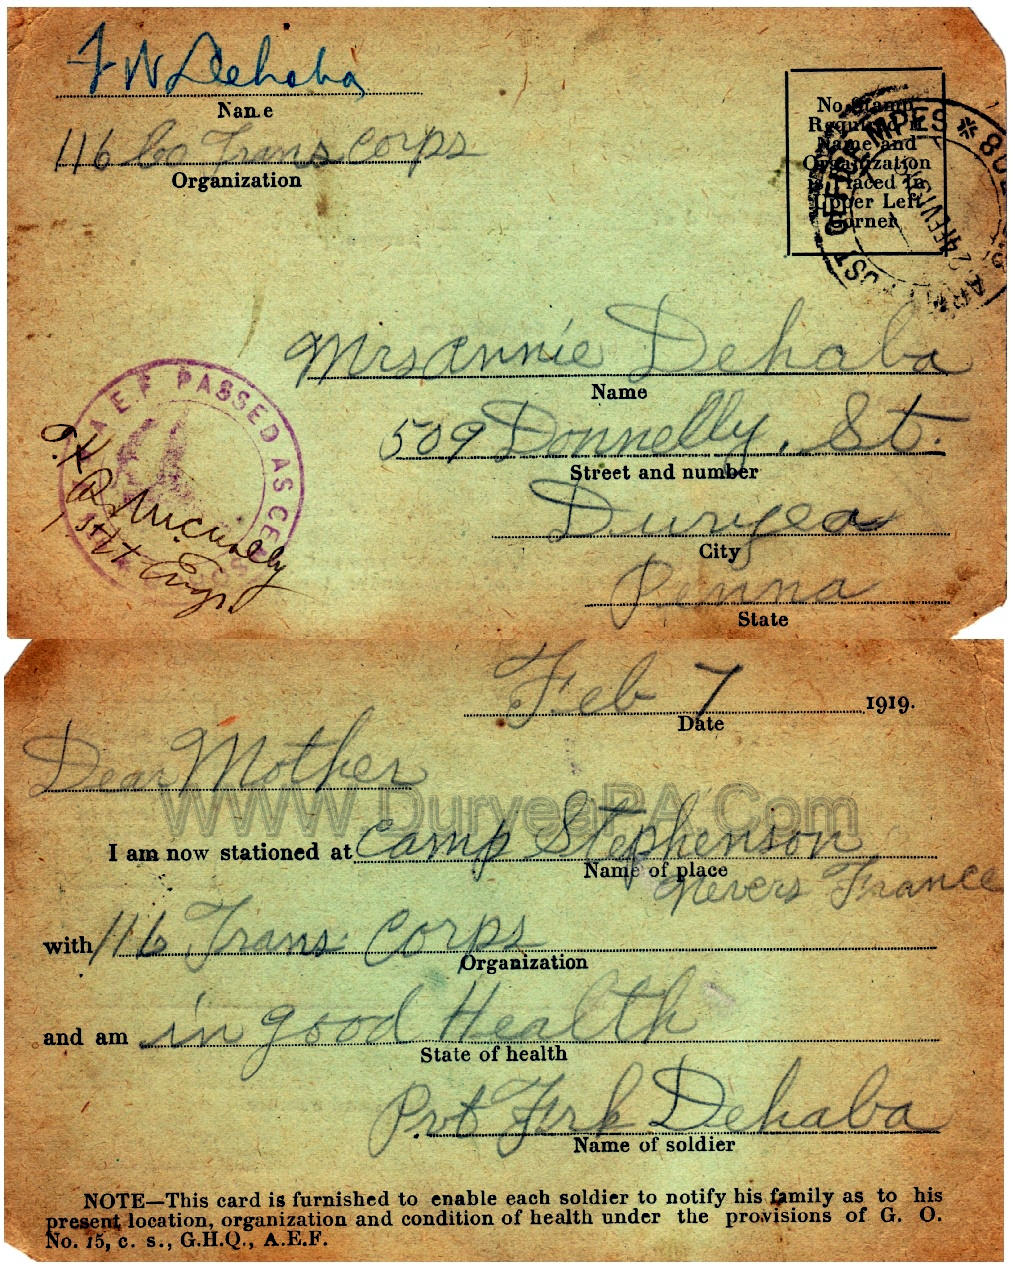 F W Dehaba
Name
116 Co Trans Corps
Organization
No Stamp
Required if
Name and
Organization
is Placed in
Upper Left
Corner
ARMY POST OFFICE MPES * 802
24 FEVR 19
Mrs Annie Dehaba
Name
509 Donnelly. St.
Street and number
Duryea
City
Penna
State
A E F PASSED AS CENSORED
McNally
1st Lt Engr
Feb 7 1919.
Date
Dear Mother
WWW.DuryeaPA.Com
I am now stationed at Camp Stephenson
Name of place
Nevers France
with 116 Trans. Corps
Organization
and am in good Health
State of health
Pvt Frk Dehaba
Name of soldier
NOTE—This card is furnished to enable each soldier to notify his family as to his
present location, organization and condition of health under the provisions of G. O.
No. 15, c. s., G.H.Q., A.E.F.